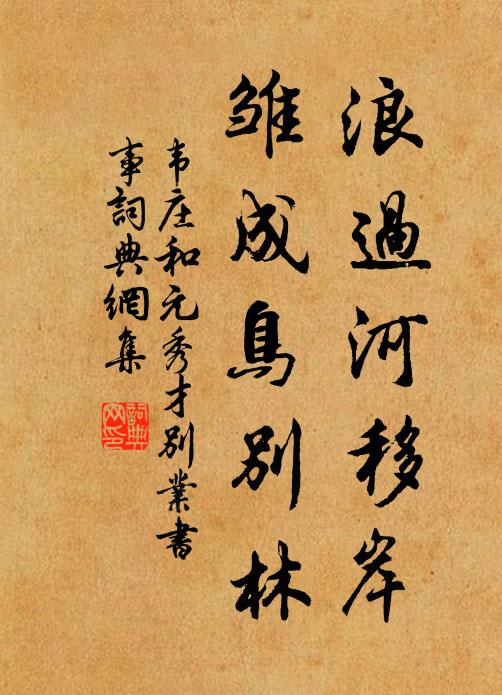 浪過河移岸
雏成鳥別林
韦庄和元秀才別業書
事詞典網集
詞典
网印